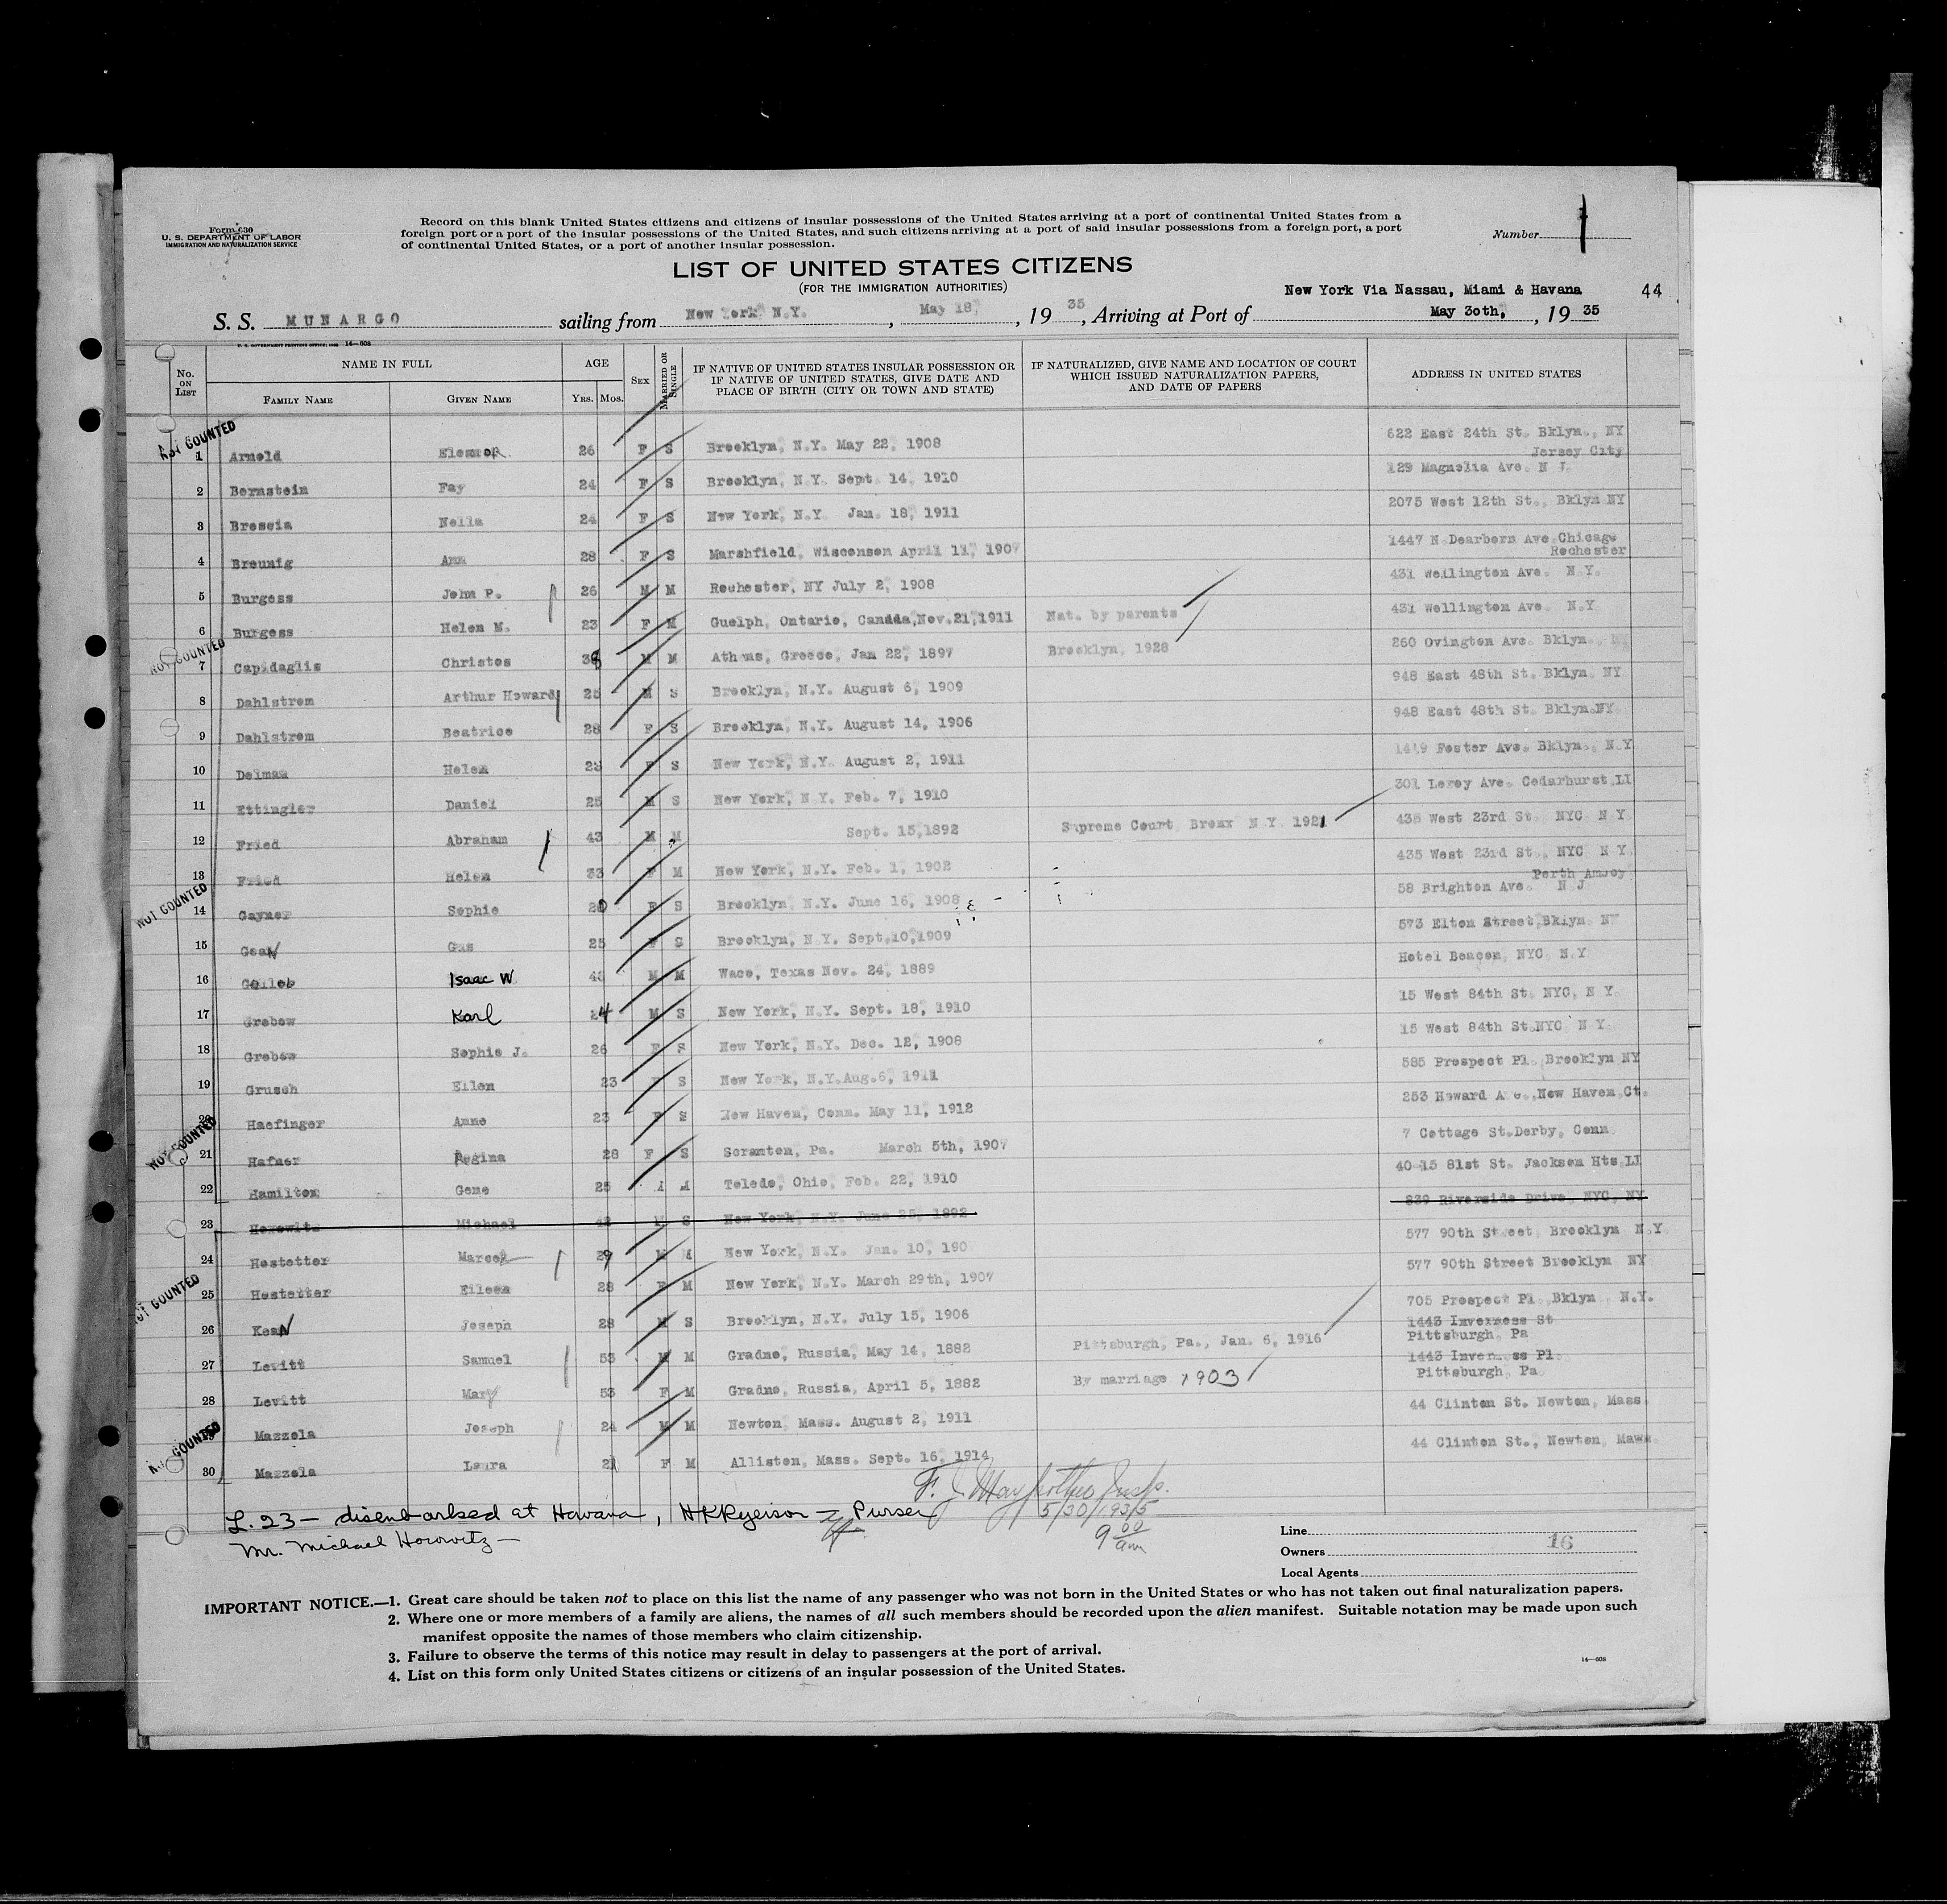 Form 630
U. S. DEPARTMENT OF LABOR
IMMIGRATION AND NATURALIZATION SERVICE
Record on this blank United States citizens and citizens of insular possessions of the United States arriving at a port of continental United States from a
foreign port or a port of the insular possessions of the United States, and such citizens arriving at a port of said insular possessions from a foreign port, a port
of continental United States, or a port of another insular possession.
Number 1
LIST OF UNITED STATES CITIZENS
(FOR THE IMMIGRATION AUTHORITIES)
New York Via Nassau, Miami & Havana 44
S. S. MUNARGO sailing from New York N.Y. , May 18, , 19 35, Arriving at Port of May 30th, , 19 35
14—608
No. ON LIST
NAME IN FULL
FAMILY NAME
GIVEN NAME
AGE
YRS.
MOS.
SEX
MARRIED OR SINGLE
IF NATIVE OF UNITED STATES INSULAR POSSESSION OR IF NATIVE OF UNITED STATES, GIVE DATE AND PLACE OF BIRTH (CITY OR TOWN AND STATE)
IF NATURALIZED, GIVE NAME AND LOCATION OF COURT WHICH ISSUED NATURALIZATION PAPERS, AND DATE OF PAPERS
ADDRESS IN UNITED STATES
NOT COUNTED
1 Arnold Eleanor 26 F S Brooklyn, N.Y. May 22, 1908 622 East 24th St. Bklyn., NY
2 Bernstein Fay 24 F S Brooklyn, N.Y. Sept. 14, 1910 129 Magnolia Ave. Jersey City N J.
3 Brescia Nella 24 F S New York, N.Y. Jan. 18, 1911 2075 West 12th St., Bklyn NY
4 Breunig Ann 28 F S Marshfield, Wisconsen April 11, 1907 1447 N Dearborn Ave Chicago
5 Burgess John P. 26 M M Rochester, NY July 2, 1908 431 Wellington Ave. Rochester N.Y.
6 Burgess Helen M. 23 F M Guelph, Ontario, Canada, Nov. 21, 1911 Nat. by parents 431 Wellington Ave. N.Y.
NOT COUNTED
7 Capidaglis Christos 38 M M Athens, Greece, Jan 22, 1897 Brooklyn, 1928 260 Ovington Ave. Bklyn.
8 Dahlstrom Arthur Howard 25 M S Brooklyn, N.Y. August 6, 1909 948 East 48th St. Bklyn. NY
9 Dahlstrom Beatrice 28 F S Brooklyn, N.Y. August 14, 1906 948 East 48th St. Bklyn. NY
10 Delman Helen 23 F S New York, N.Y. August 2, 1911 1449 Foster Ave. Bklyn., N.Y
11 Ettingler Daniel 25 M S New York, N.Y. Feb. 7, 1910 301 Leroy Ave. Cedarhurst LI
12 Fried Abraham 43 M M Sept. 15, 1892 Supreme Court Bronx N.Y. 1921 435 West 23rd St. NYC N Y
13 Fried Helen 33 F M New York, N.Y. Feb. 1, 1902 435 West 23rd St., NYC N Y.
NOT COUNTED
14 Gayner Sophie 26 F S Brooklyn, N.Y. June 16, 1908 58 Brighton Ave. Perth Amboy N J
15 Gus 25 F S Brooklyn, N.Y. Sept. 10, 1909 573 Elton Street, Bklyn N
16 Isaac W M M Waco, Texas Nov. 24, 1889 Hotel Beacon, NYC N.Y
17 Grebow Karl 24 M S New York, N.Y. Sept. 18, 1910 15 West 84th St. NYC, N Y.
18 Grebow Sophie J. 26 F S New York, N.Y. Dec. 12, 1908 15 West 84th St. NYC N Y.
19 Grusch Ellen 23 F S New York, N.Y. Aug. 6, 1911 585 Prospect Pl. Brooklyn NY
20 Haefinger Anne 23 F S New Haven, Conn. May 11, 1912 253 Howard Ave., New Haven, Ct.
NOT COUNTED
21 Hafner Regina 28 F S Scranton, Pa. March 5th, 1907 7 Cottage St. Derby, Conn
22 Hamilton Gene 25 M Toledo, Ohio, Feb. 22, 1910 40-15 81st St. Jackson Hts LI
23 Horowitz Michael 42 M S New York, N.Y. June 25, 1892 839 Riverside Drive, NYC, NY
24 Hostetter 29 M M New York, N.Y. Jan. 10, 190 577 90th Street, Brooklyn N.Y
NOT COUNTED
25 Hostetter Eileen 28 F M New York, N.Y. March 29th, 1907 577 90th Street Brooklyn NY
26 Kean Joseph 28 M S Brooklyn, N.Y. July 15, 1906 705 Prospect Pl. Bklyn. N.Y.
27 Levitt Samuel 53 M M Gradno, Russia, May 14, 1882 Pittsburgh, Pa., Jan. 6, 1916 1443 Inverness St Pittsburgh, Pa
28 Levitt Mary 53 F M Gradno, Russia, April 5, 1882 By marriage 1903 1443 Inverness Pl. Pittsburgh, Pa
29 Mazzola Joseph 24 M M Newton, Mass. August 2, 1911 44 Clinton St. Newton, Mass
NOT COUNTED
30 Mazzola Laura 21 F M Allston, Mass. Sept. 16, 1914 44 Clinton St., Newton, Mass.
L. 23 — disembarked at Havana, HKRyerson Purser
Mr. Michael Horowitz —
5/30/1935
9 00 am
Line
Owners 16
Local Agents
IMPORTANT NOTICE.—1. Great care should be taken not to place on this list the name of any passenger who was not born in the United States or who has not taken out final naturalization papers.
2. Where one or more members of a family are aliens, the names of all such members should be recorded upon the alien manifest. Suitable notation may be made upon such
manifest opposite the names of those members who claim citizenship.
3. Failure to observe the terms of this notice may result in delay to passengers at the port of arrival.
4. List on this form only United States citizens or citizens of an insular possession of the United States.
14—608